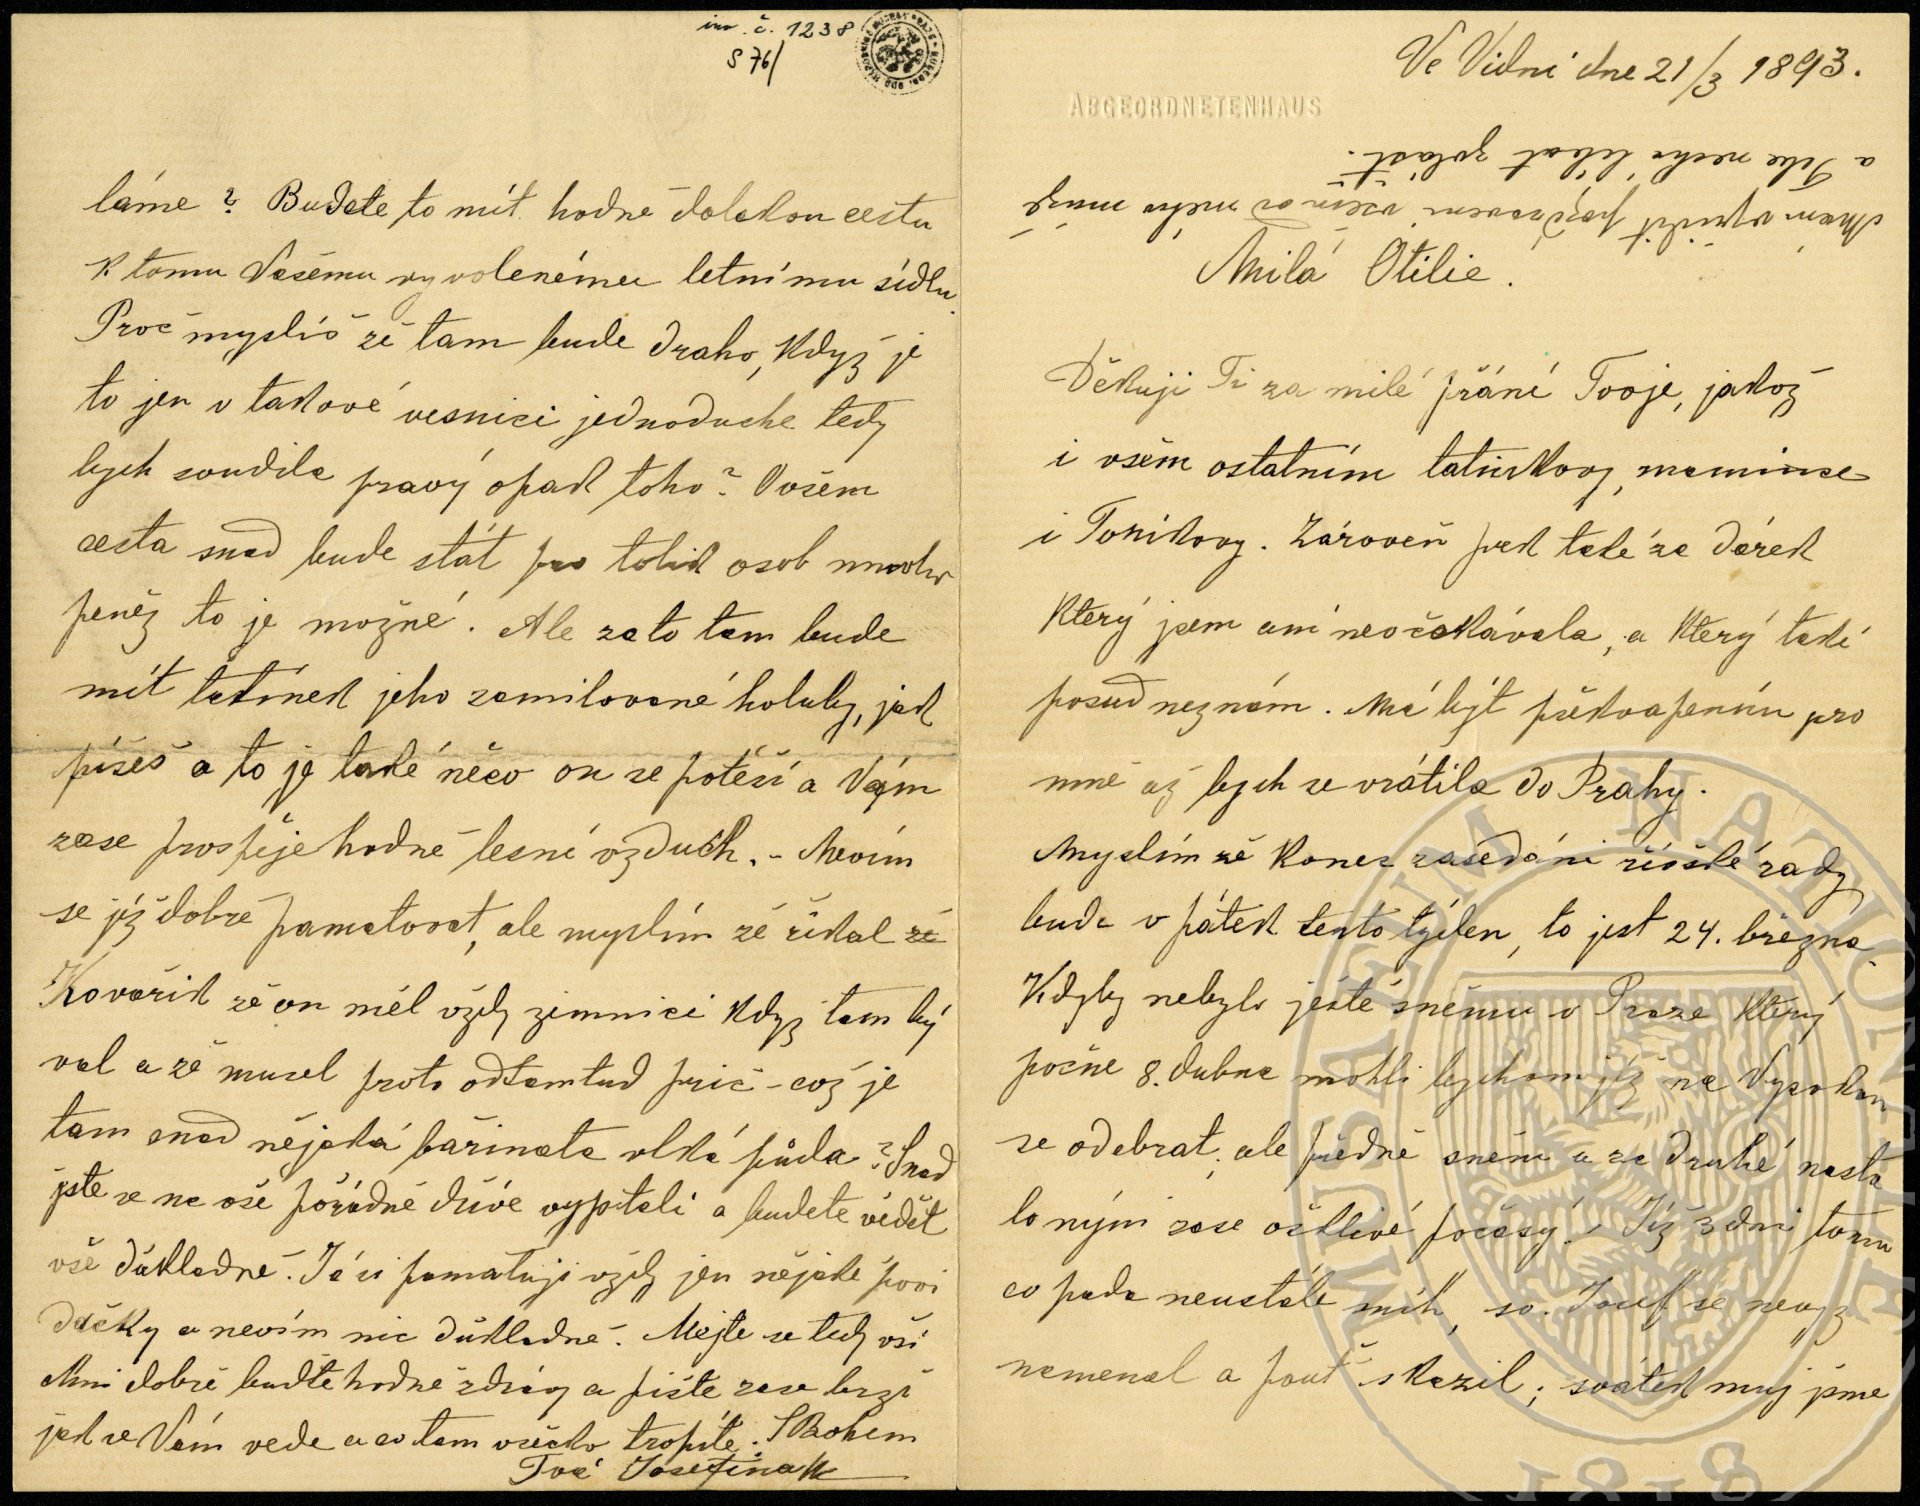 Ve Vídni dne 21/3 1893.
ABGEORDNETENHAUS
Mám vyřídit pozdravení všem od mého muže
a Tebe nechá líbat zvlášť.
Milá Otilie.
Děkuji Ti za milé přání Tvoje, jakož
i všem ostatním tatínkovy, mamince
i Toníkovy. Zároveň pak také za dárek
který jsem ani neočekávala, a který také
posud neznám. Má být překvapením pro
mně až bych se vrátila do Prahy.
Myslím že konec zasedání říšské rady
bude v pátek tento týden, to jest 24. března.
Kdyby nebylo ještě sněmu v Praze který
počne 8. dubna mohli bychom již na Vysokou
se odebrat, ale předně sněm a za druhé nasta
lo ným zase ošklivé počasý. Již 3 dni tomu
co padá neustále sníh, sv. Josef se nevyz
namenal a pouť skazil; svátek muj jsme
inv. č. 1238
S 76/
láme? Budete to mít hodně dalekou cestu
k tomu Vašému vyvolenému letnímu sídlu.
Proč myslíš že tam bude draho, když je
to jen v takové vesnici jednoduché tedy
bych soudila pravý opak toho? Ovšem
cesta snad bude stát pro tolik osob mnoho
peněz to je možné. Ale za to tam bude
mít tatínek jeho zamilované holuby, jak
píšeš a to je také něco on se potěší a Vám
zase prospěje hodně lesní vzduch. - Nevím
se již dobře pamatovat, ale myslím že říkal že
Kovařík že on měl vždy zimnici když tam bý
val a že musel proto odtamtud prič - což je
tam snad nějaká bařinata vlká půda? Snad
jste se na vše pořádně dříve vyptali a budete vědět
vše důkladně. Já si pamatuji vždy jen nějaké poví
dačky a nevím nic důkladně. Mějte se tedy vši
Mni dobře buďte hodně zdrávy a pište zase brzi
jak se Vám vede a co tam všecko tropíte. S Bohem
Tvá Josefina K
MUSAEUM NATIONALE
1818